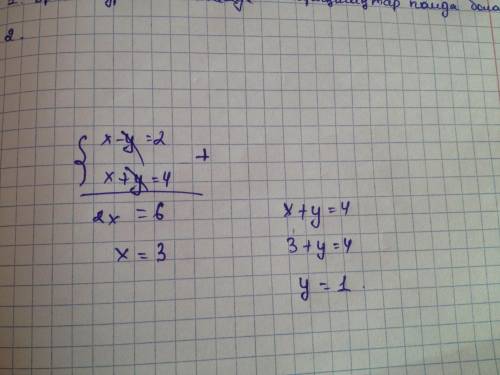 пайда бола
2.
x-y=2
+
x+y=4
2x = 6
x = 3
x+y=4
3+y=4
y = 1.